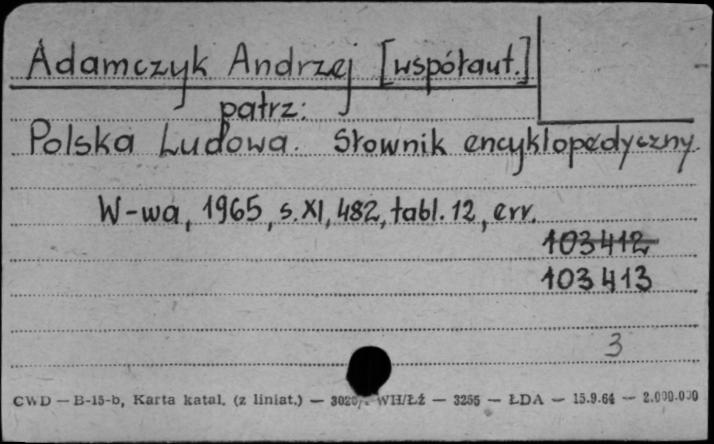 Adamczyk Andrzej [współaut.]
patrz:
Polska Ludowa. Słownik encyklopedyczny.
W-wa, 1965, s. XI, 482, tabl. 12, err.
103412
103413
3
CWD — B-15-b, Karta katal. (z liniat.) — WH/Łż — 3255 — ŁDA — 15.9.64 — 2.000.000